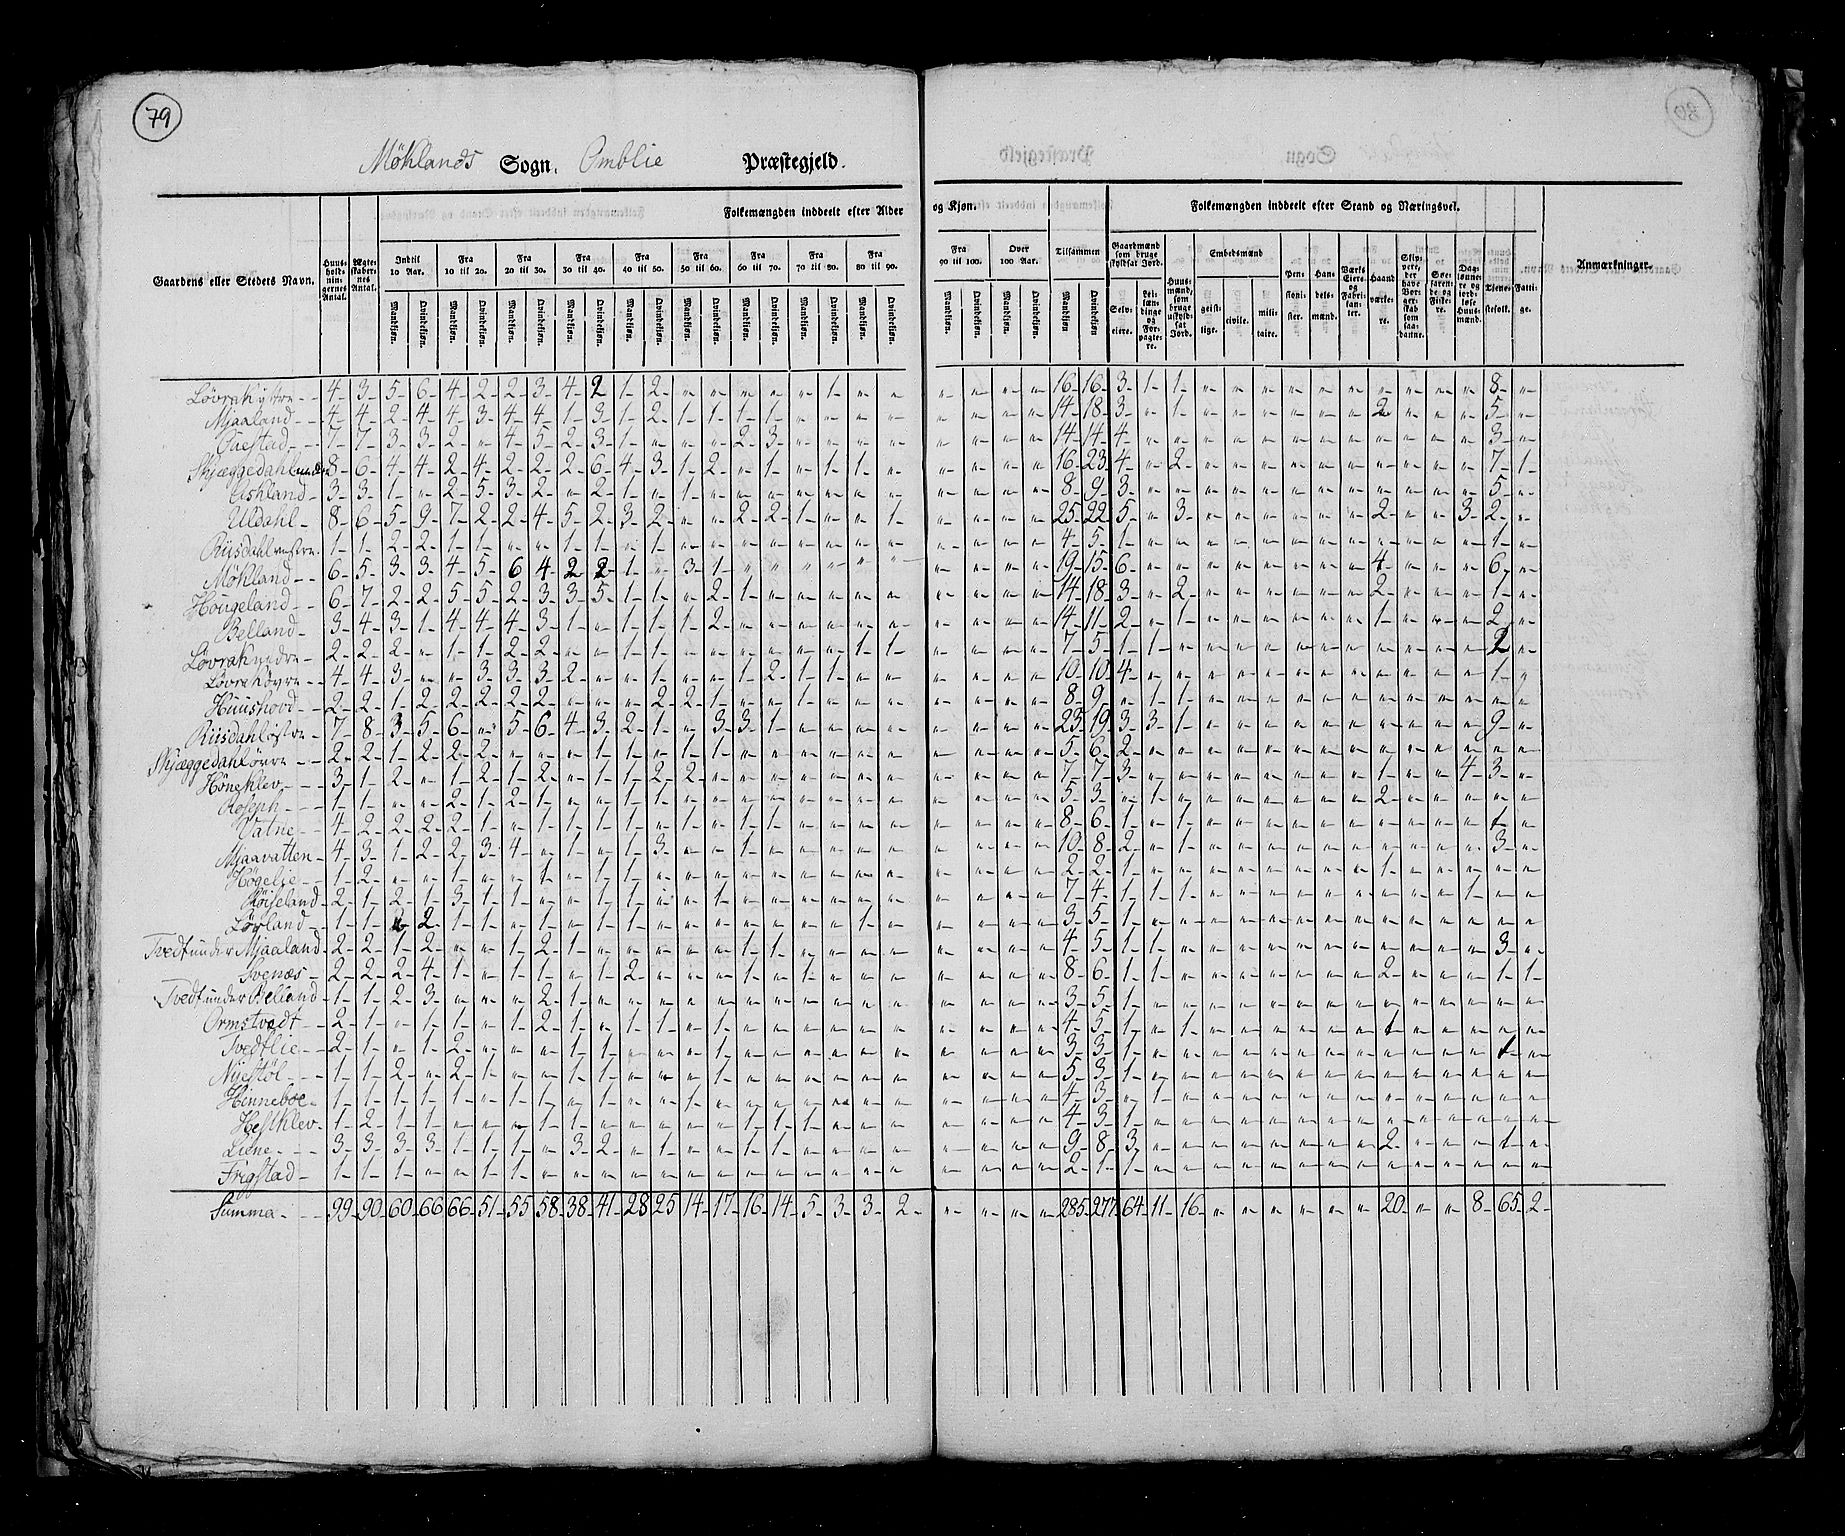 79
Møhlands Sogn. Omblie Præstegjeld.
Gaardens eller Steders Navn. Huus-holdnin-gernes Antal. Ægte-skaber-nes Antal. Folkemængden inddeelt efter Alder og Kjøn. Tilsammen Folkemængden inddeelt efter Stand og Næringsvei. Anmærkninger.
Indtil 10 Aar. Fra 10 til 20. Fra 20 til 30. Fra 30 til 40. Fra 40 til 50. Fra 50 til 60. Fra 60 til 70. Fra 70 til 80. Fra 80 til 90. Fra 90 til 100. Over 100 Aar.
Gaardmænd som bruge skyldsat Jord. Huus-mænd, som bruge uskyld-sat Jord. Embedsmænd Pen-sioni-ster. Han-dels-mænd. Værks Eiere og Fabri-kan-ter. Haand-værke-re. Skip-pere, der have Bor-ger-skab som saa-danne. Søe-faren-de og Fiske-re. Dag-lønne-re og jord-løse Huus-mænd. Tjene-stefolk. Fatti-ge.
Mandkjøn. Qvindekjøn. Selv-eiere. Lei-læn-dinge og For-pagte-re. geist-lige. civile. mili-taire.
Løvrak ystre 4 3 5 6 4 2 2 3 4 2 1 2 " " " " " 1 " " " " " " 16 16 3 1 1 " " " " " " " " " " 8 "
Mjaaland 4 4 2 4 4 3 4 4 1 3 1 2 1 1 1 1 " " " " " " " " 14 18 3 " 1 " " " " " " 2 " " " 5 "
7 7 3 3 2 " 4 5 2 3 1 " " " 2 3 " " " " " " " " 14 14 4 " " " " " " " " " " " " 3 "
Skjæggedahl nedre 8 6 4 4 2 4 2 2 2 6 4 3 1 2 " 1 " 1 1 " " " " " 16 23 4 " 2 " " " " " " " " " " 7 1
Ashland 3 3 1 " 2 5 3 2 " 2 1 " 1 " " " " " " " " " " " 8 9 3 " " " " " " " " " " " " 5 "
Uldahl 8 6 5 9 7 2 2 4 5 2 3 2 " " 2 2 1 " " 1 " " " " 25 22 5 " 3 " " " " " " 2 " " 3 2 "
Riisdahl vestre 1 1 2 2 1 1 " " 1 1 " 1 " " " " " " " " " " " " 4 5 1 " " " " " " " " " " " " 1 "
Møhland 6 5 3 3 4 5 6 4 2 2 1 " 3 1 " " " " " " " " " " 19 15 6 " " " " " " " " 4 " " " 6 "
Hougeland 6 7 2 2 5 5 2 3 3 5 1 1 " 2 1 " " " " " " " " " 14 18 3 " 2 " " " " " " 2 " " " 1 "
Belland 3 4 3 1 4 4 4 3 1 " 1 1 1 2 " " " " " " " " " " 14 11 2 " 1 " " " " " " 1 " " " 2 "
Løvrak nedre 2 2 2 " 1 1 2 2 " " 1 1 " " " " " " 1 1 " " " " 7 5 1 1 " " " " " " " " " " " 2 "
Løvrak øvre 4 4 3 " " 3 3 3 2 " " 1 " " 1 2 1 1 " " " " " " 10 10 4 " " " " " " " " " " " " 1 "
Huushovd 2 2 1 2 2 2 2 2 " " " 2 2 1 " " " " " " " " " " 8 9 " 1 1 " " " " " " " " " " " "
Riisdahl østre 7 8 3 5 6 " 5 6 4 3 2 1 " 3 3 1 " " " " " " " " 23 19 3 3 1 " " " " " " " " " " 9 "
Skjæggedahl øvre 2 2 1 2 2 2 " " " 1 1 " 1 1 " " " " " " " " " " 5 6 2 " " " " " " " " " " " " " "
Høneklev 3 1 2 " 1 2 1 2 " 1 1 2 2 " " " " " " " " " " " 7 7 3 " " " " " " " " 1 " " 4 3 "
Roseph 1 1 " " 2 1 2 1 " " 1 1 " " " " " " " " " " " " 5 3 " 1 " " " " " " " 2 " " " " "
Vatne 4 2 2 2 2 1 " 1 1 1 " 1 " 1 1 " " " " " " " " 8 6 1 " 1 " " " " " " " " " " 1 "
Mjaavatten 4 3 1 2 2 3 4 " 1 " 1 3 " " 1 " " " " " " " " " 10 8 2 " 1 " " " " " " " " " " 3 "
Høgelie 1 2 " " 1 " " 1 " 1 1 " " " " " " " " " " " " 2 2 1 " " " " " " " " 1 " " " " "
Røiseland 2 1 2 1 3 1 1 " " 1 1 " " 1 " " " " " " " " " " 7 4 1 1 1 " " " " " " " " " 1 " "
Løvland 1 1 " 2 1 1 1 1 " 1 " " " " " " " " 1 " " " " " 3 5 1 " " " " " " " " " " " " " "
Tvedt under Mjaaland 2 2 1 2 " " 1 2 1 " " " " " 1 1 " " " " " " " " 4 5 1 1 " " " " " " " " " " " 3 "
Svenæs 2 2 2 4 1 " 1 1 " 1 2 " " " 1 " 1 " " " " " " " 8 6 1 1 " " " " " " " 2 " " " 1 1
Tvedt under Belland 1 1 2 3 " " " 2 1 " " " " " " " " " " " " " " " 3 5 1 " " " " " " " " " " " " " "
Ormstvedt 2 1 " 1 1 " 1 2 1 " 1 1 " 1 " " " " " " " " " " 4 5 1 " 1 " " " " " " 1 " " " " "
Tvedtlie 2 1 " 1 2 " " " 1 1 " " " 1 " " " " " " " " " " 3 3 1 " " " " " " " " " " " " 1 "
Nyestøl 1 1 2 " 2 1 " " 1 1 " " " 1 " " " " " " " " " " 5 3 1 " " " " " " " " " " " " " "
Hinneboe 1 1 1 1 1 1 " 1 1 " 1 " " 1 " " " " " " " " " " 4 3 " 1 " " " " " " " " " " " " "
Hestklev 1 2 1 1 " " " 1 1 " " " " " 1 1 1 " " " " " " " 4 3 1 " " " " " " " " " " " " " "
Liene 3 3 3 3 1 1 1 " 3 2 " 1 " 1 1 " " " " " " " " " 9 8 3 " " " " " " " " 2 " " " 1 "
Frigstad 1 1 1 " " 1 1 " " " " " " " " " " " " " " " " " 2 1 1 " " " " " " " " " " " " " "
Summa 99 90 60 66 66 51 55 58 38 41 28 25 14 17 16 14 5 3 3 2 " " " " 285 277 64 11 16 " " " " " " 20 " " 8 65 2